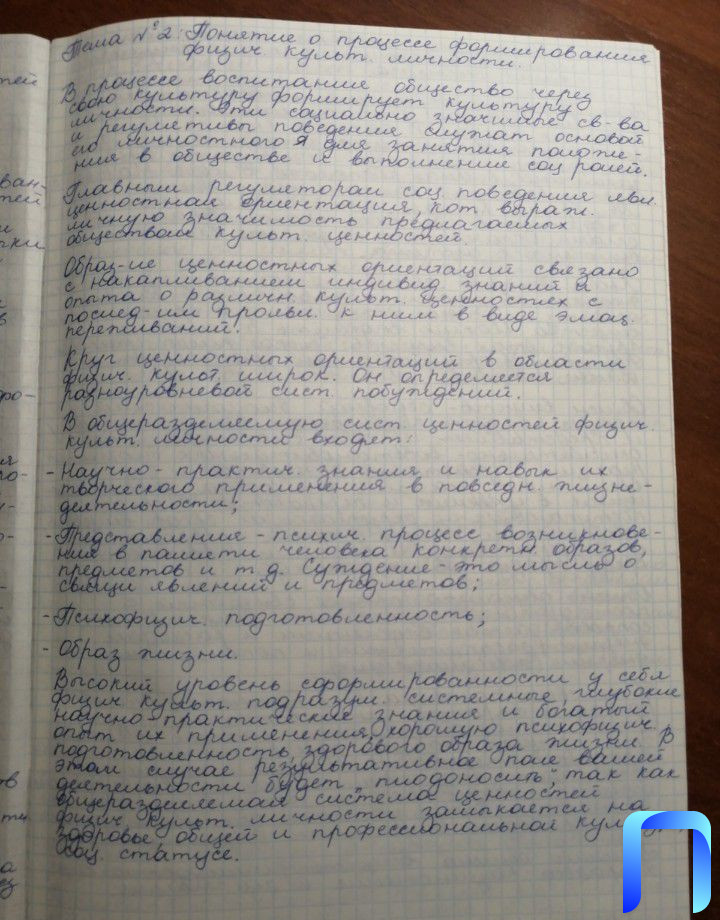 Тема №2: Понятие о процессе формирования
физич культ. личности.
В процессе воспитание общество через
свою культуру формирует культуру
личности. Эти социально значимые св-ва
и регулетивы поведения служат основой
его личностного Я для занятия положе-
ния в обществе и выполнение соц ролей.
Главным регулетором соц. поведения явл.
ценностная ориентация, кот. выраж.
личную значимость предлагаемых
обществом культ. ценностей.
Образ-ие ценностных ориентаций связано
с накапливанием индивид знаний и
опыта о различн. культ. ценностях с
послед-им проявл. к ним в виде эмоц.
переживаний.
Круг ценностных ориентаций в области
физич. культ. широк. Он определяется
разноуровневой сист. побуждений.
В общеразделяемую сист. ценностей физич.
культ. личности входят:
- Научно-практич. знания и навык их
творческого применения в повседн. жизне-
деятельности;
- Представление - психич. процесс возникнове-
ния в памяти человека конкретн. образов,
предметов и т д. Суждение - это мысль о
связи явлений и предметов;
- Психофизич. подготовленность;
- Образ жизни.
Высокий уровень сформированности у себя
физич. культ. подразум. системные глубокие
научно-практические знания и богатый
опыт их применения, хорошую психофизич.
подготовленность, здорового образа жизни. В
этом случае результативное поле вашей
деятельности будет "плодоносить", так как
общеразделяемая система ценностей
физич культ. личности замыкается на
здоровье общей и профессиональной
соц статусе.